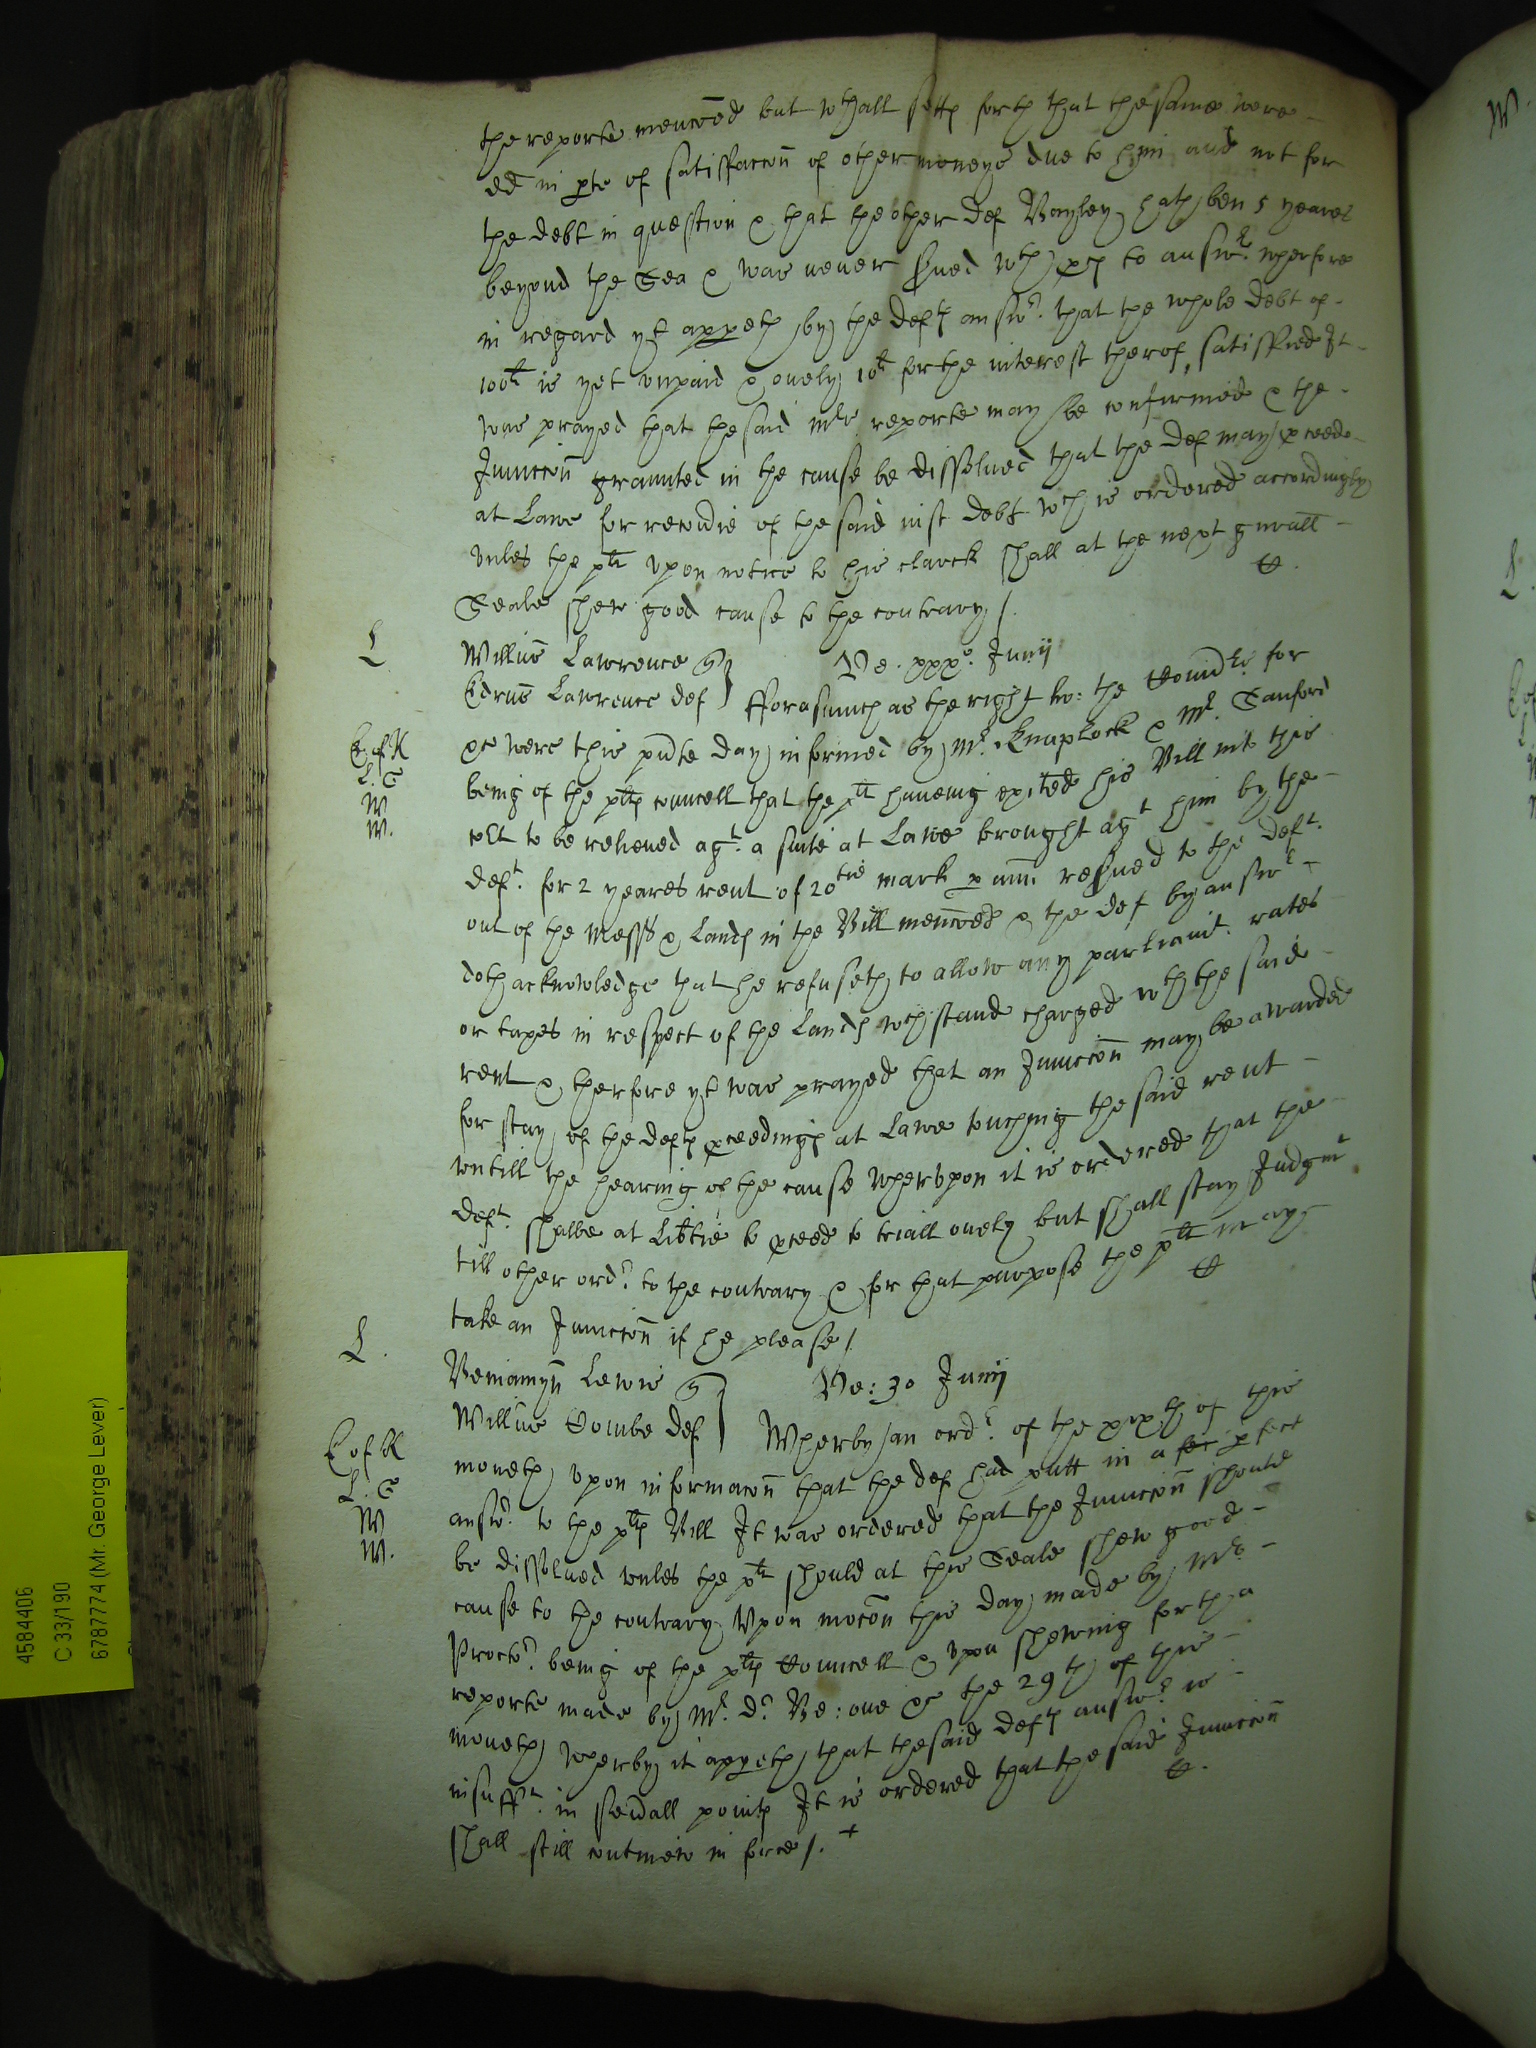 the reporte menc̄oed but wthall setts forth that the same were
in pte of satisfacc̄on of other moneys due to him and not for
the debt in question & that the other def Bayley hath ben 5 yeares
beyond the Sea & was never served wth pces to answr. wherfore
in regard yt appeth by the defts answr. that the whole debt of
100li is yet vnpaid & onely 10li for the interest therof satisfied It
was prayed that the said mrs reporte may be confirmed & the
Iniuncc̄on graunted in the cause be dissolued that the def may pceede
at Lawe for recouie of the said iust debt wch is ordered accordingly
vnles the plt vpon notice to his clarck shall at the next gnrall
Seale shew good cause to the contrary /.
L
Willm̄s Lawrence q
Ve. xxxo. Junij
Edrus Lawrence def
fforasmuch as the right ho: the Com̄drs for
&c were this pn̄te day informed by Mr. Knaplock & Mr. Sanford
E of K
L. G
W
W.
being of the plts councell that the plt haueing exi̅ted his Bill into this
co̅rt to be relieued agt. a suite at Lawe brought agt him by the
deft. for 2 yeares rent of 20tie mark p ann̄ reserued to the deft.
out of the Mess & Lands in the Bill menc̄oed & the def by answr
doth acknowledge that he refuseth to allow any parliamt. rates
or taxes in respect of the Lands wch stand charged wth the said
rent & therfore yt was prayed that an Iniuncc̄on may be awarded
for stay of the defts pceedings at Lawe touching the said rent
vntill the hearing of the cause wherevpon it is ordered that the
deft. shalbe at Lib̄tie to pceed to triall onely but shall stay Judgmt
till other ordr. to the contrary & for that purpose the plt may
take an Iniuncc̄on if he please /.
L.
Beniamyn Lewis q
Ve: 30 Junij
Willm̄s Combe def
Wherby an ordr. of the xixth of this
E of K
L. G
W
W.
moneth vpon informac̄on that the def had putt in a pfect
answr. to the plts Bill It was ordered that the Iniuncc̄on should
be dissolued vnles the plt should at this Seale shew good
cause to the contrary Vpon moc̄on this day made by Mr.
Proctr. being of the plts Councell & vpon shewing forth a
reporte made by Mr. Dr. Be: one &c the 29th of this
moneth wherby it appeth that the said defts answr. is
insufft. in seu̅all points It is ordered that the said Iniuncc̄on
shall still continew in force /. +
4584406
C 33/190
6787774 (Mr. George Lever)